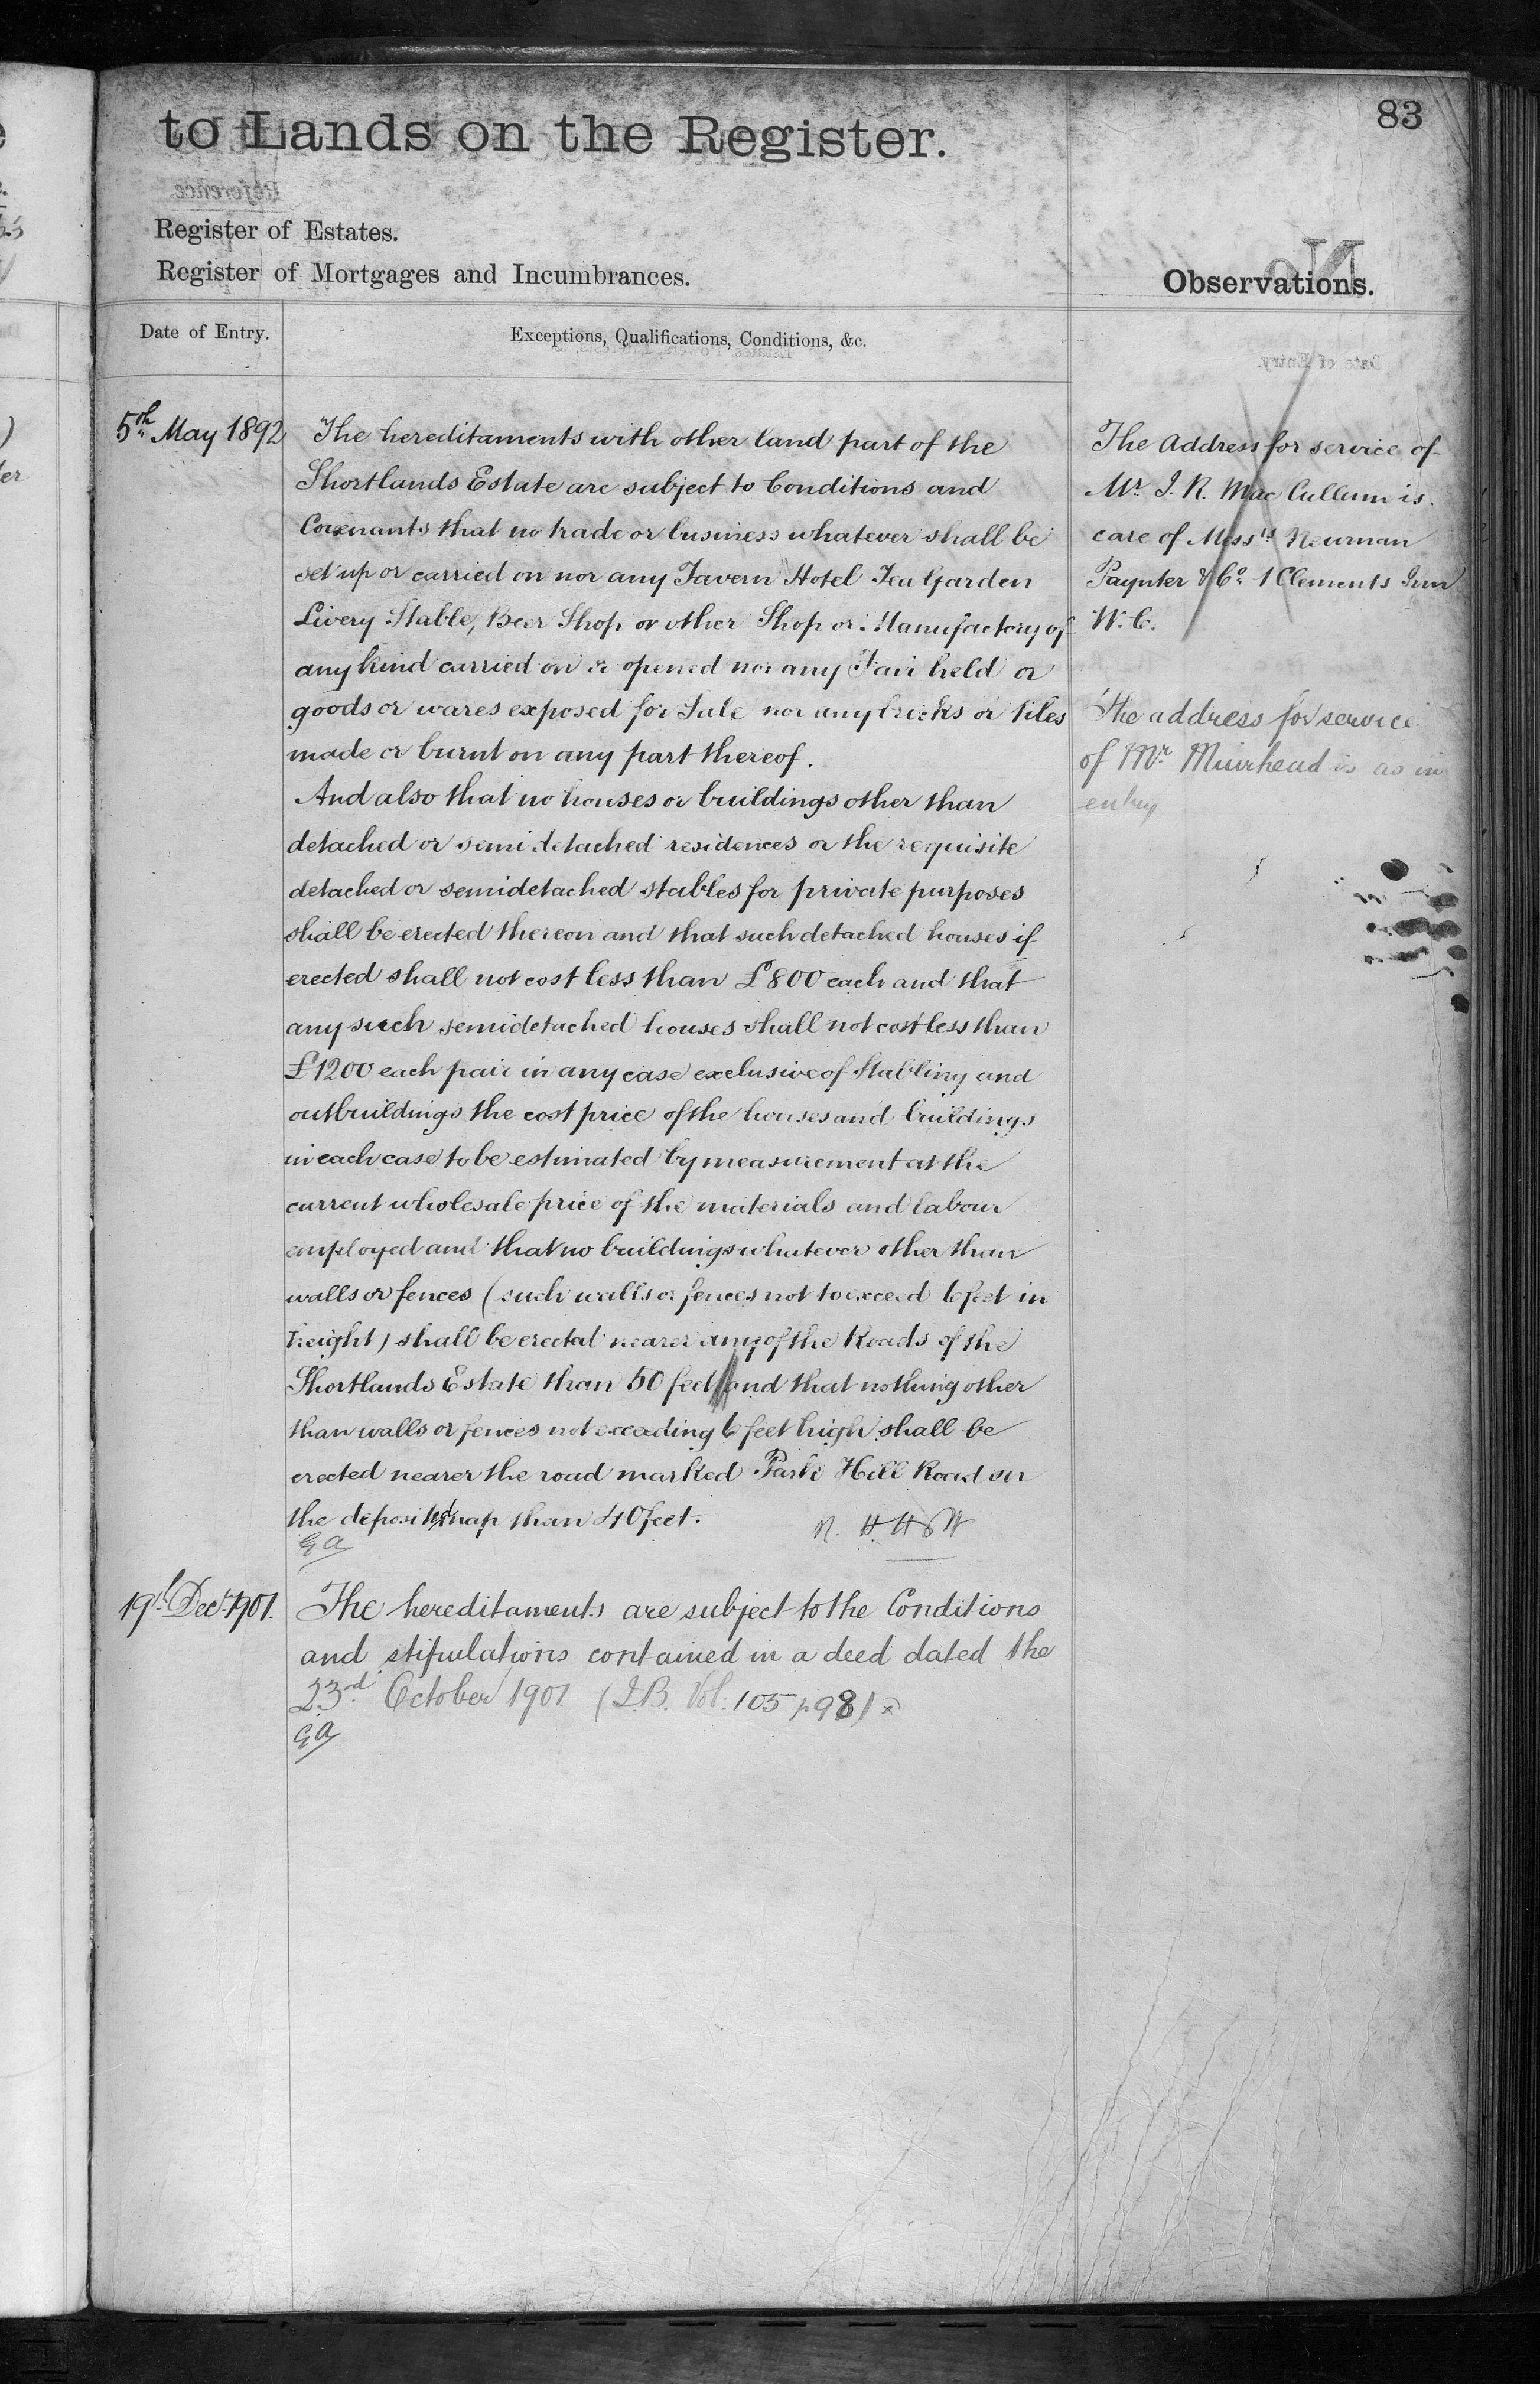 83
to Lands on the Register.
Register of Estates.
Register of Mortgages and Incumbrances.
Observations.
Date of Entry.
Exceptions, Qualifications, Conditions, &c.
5th May 1892
The hereditaments with other land part of the
Shortlands Estate are subject to Conditions and
Covenants that no trade or business whatever shall be
set up or carried on nor any Tavern Hotel Tea Garden
Livery Stable, Beer Shop or other Shop or Manufactory of
any kind carried on or opened nor any Fair held or
goods or wares exposed for Sale nor any bricks or tiles
made or burnt on any part thereof.
And also that no houses or buildings other than
detached or semi detached residences or the requisite
detached or semidetached stables for private purposes
shall be erected thereon and that such detached houses if
erected shall not cost less than £800 each and that
any such semidetached houses shall not cost less than
£1200 each pair in any case exclusive of Stabling and
outbuildings the cost price of the houses and buildings
in each case to be estimated by measurement at the
current wholesale price of the materials and labour
employed and that no buildings whatever other than
walls or fences (such walls or fences not to exceed 6 feet in
height) shall be erected nearer any of the Roads of the
Shortlands Estate than 50 feet and that nothing other
than walls or fences not exceeding 6 feet high shall be
erected nearer the road marked Park Hill Road on
the deposited map than 40 feet.
GA
19th Decr. 1901.
The hereditaments are subject to the Conditions
and stipulations contained in a deed dated the
23rd October 1901 (I.B. Vol: 105 p 98)
GA
The Address for service of
Mr. J. R. Mac Cullum is
care of Messrs Newman
Paynter & Co. 1 Clements Inn
W.C.
The address for service
of Mr Muirhead is as in
entry